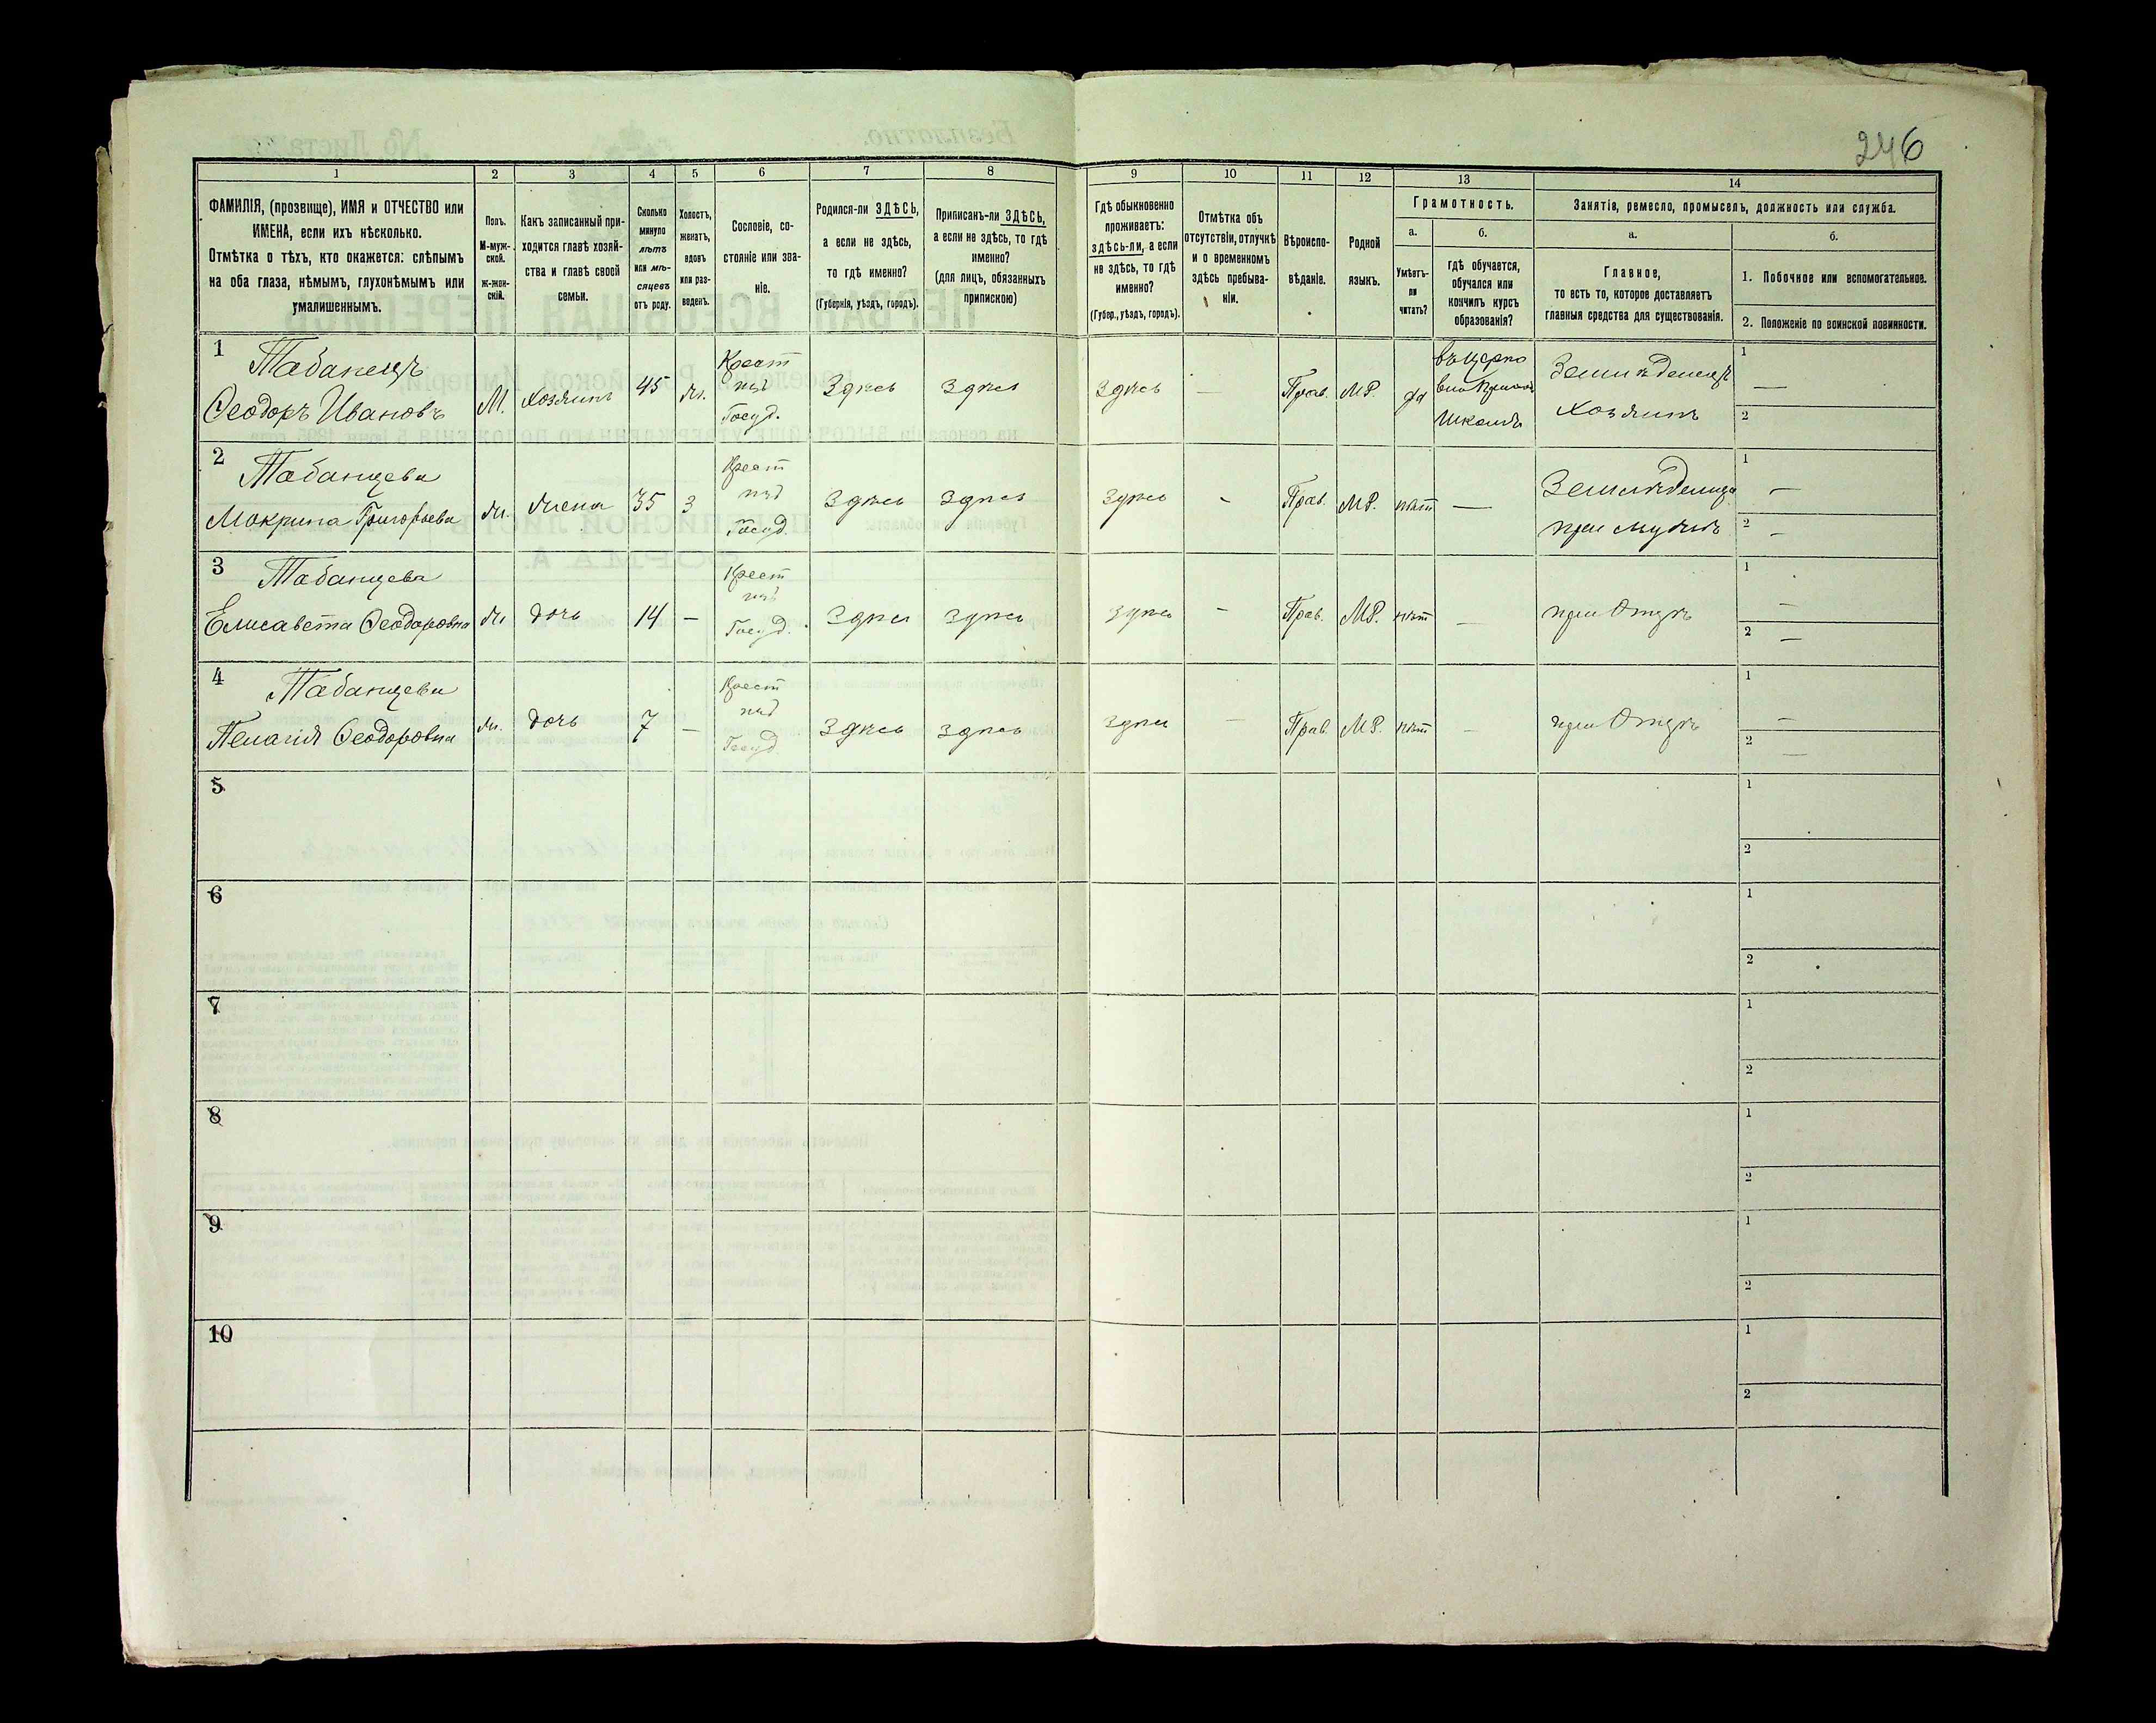 246
1 2 3 4 5 6 7 8 9 10 11 12 13 14
ФАМИЛІЯ, (прозвище), ИМЯ и ОТЧЕСТВО или
ИМЕНА, если ихъ нѣсколько.
Отмѣтка о тѣхъ, кто окажется: слѣпымъ
на оба глаза, нѣмымъ, глухонѣмымъ или
умалишеннымъ.
Полъ.
М-муж-
ской.
ж-жен-
скій.
Какъ записанный при-
ходится главѣ хозяй-
ства и главѣ своей
семьи.
Сколько
минуло
лѣтъ
или мѣ-
сяцевъ
отъ роду.
Холостъ,
женатъ,
вдовъ
или раз-
веденъ.
Сословіе, со-
стояніе или зва-
ніе.
Родился-ли ЗДѢСЬ,
а если не здѣсь,
то гдѣ именно?
(Губернія, уѣздъ, городъ).
Приписанъ-ли ЗДѢСЬ,
а если не здѣсь, то гдѣ
именно?
(для лицъ, обязанныхъ
припискою)
Гдѣ обыкновенно
проживаетъ:
здѣсь-ли, а если
не здѣсь, то гдѣ
именно?
(Губер., уѣздъ, городъ).
Отмѣтка объ
отсутствіи, отлучкѣ
и о временномъ
здѣсь пребыва-
ніи.
Вѣроиспо-
вѣданіе.
Родной
языкъ.
Грамотность.
а.
Умѣетъ-
ли
читать?
б.
гдѣ обучается,
обучался или
кончилъ курсъ
образованія?
Занятія, ремесло, промыселъ, должность или служба.
а.
Главное,
то есть то, которое доставляетъ
главныя средства для существованія.
б.
1. Побочное или вспомогательное.
2. Положеніе по воинской повинности.
1 Табанецъ
Ѳеодоръ Ивановъ М. Хозяинъ 45 ж. Крест
Госуд. Здѣсь Здѣсь Здѣсь — Прав. МР. да
Школѣ
Земледѣлецъ
Хозяинъ
1 —
2
2 Табанцева
Макрина Григорьева ж. жена 35 з Крест
Госуд. Здѣсь Здѣсь Здѣсь - Прав. МР. нѣт —
Земледѣлица
при мужѣ
1 —
2 -
3 Табанцева
Елисавета Ѳеодоровна ж дочь 14 — Крест
Госуд. Здѣсь Здѣсь Здѣсь - Прав. МР. нѣт —
при Отцѣ
1 —
2 —
4 Табанцева
Пелагія Ѳеодоровна ж. дочь 7 — Крест
Госуд. Здѣсь Здѣсь Здѣсь — Прав. МР. нѣт -
при Отцѣ
1 —
2 —
5 1
2
6 1
2
7 1
2
8 1
2
9 1
2
10 1
2